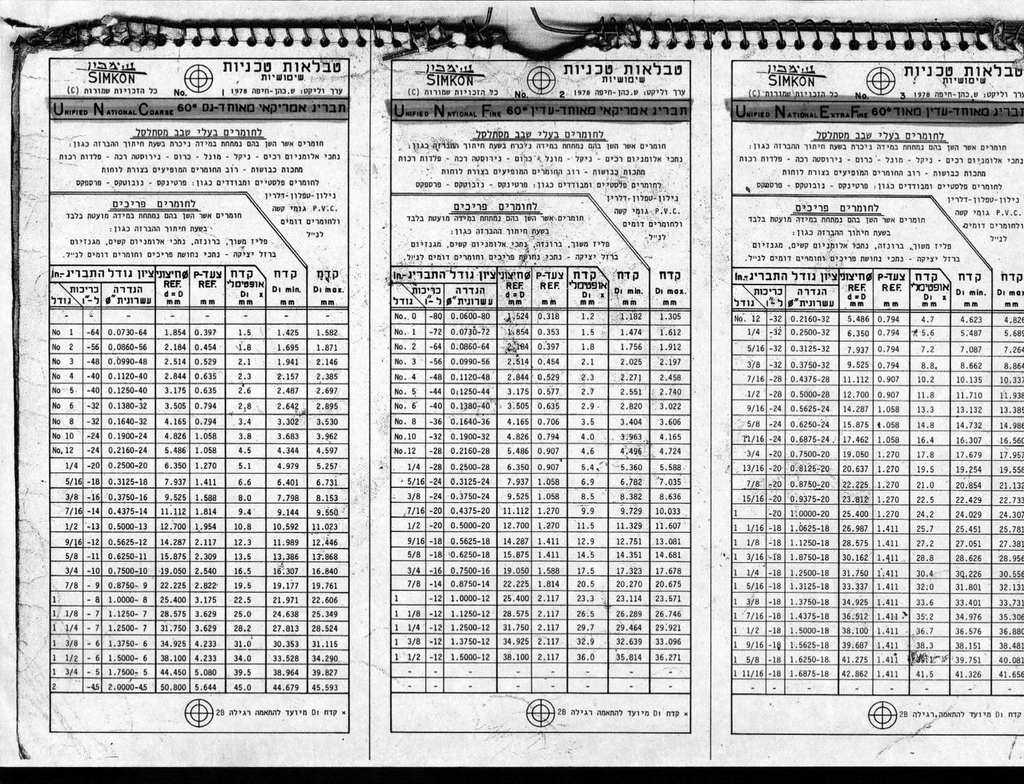 סימקון
SIMKON
טבלאות טכניות
שימושיות
ערך וליקט: ש.כהן-חיפה 1978
No. 1
כל הזכויות שמורות (C)
UNIFIED NATIONAL COARSE תבריג אמריקאי מאוחד-גס 60°
לחומרים בעלי שבב מסתלסל
חומרים אשר השן בהם נמתחת במידה ניכרת בשעת חיתוך ההברזה כגון:
נחכי אלומניום רכים - ניקל - מונל - כרום - נירוסטה רכה - פלדות רכות
מתכות כבושות - רוב החומרים המופיעים בצורת לוחות
לחומרים פלסטיים ומבודדים כגון: פרטינקס - נובוטקס - פרספקס
נילון-טפלון-דלרין
P.V.C. גומי קשה
ולחומרים דומים
לנ"ל
לחומרים פריכים
חומרים אשר השן בהם נמתחת במידה מועטת בלבד
בשעת חיתוך ההברזה כגון:
פליז משוך, ברונזה, נתכי אלומניום קשים, מגנזיום
ברזל יציקה - נתכי נחושת פריכים וחומרים דומים לנ"ל
ציון גודל התבריג -.in חיצוני Ø צעד-P קדח קדח קדח
גודל כריכות ל-"1 הגדרה עשרונית "Ø REF. d=D mm REF. mm אופטימלי D1 x mm D1 min. mm D1 max. mm
- - - - - - - -
No 1 -64 0.0730-64 1.854 0.397 1.5 1.425 1.582
No 2 -56 0.0860-56 2.184 0.454 1.8 1.695 1.871
No 3 -48 0.0990-48 2.514 0.529 2.1 1.941 2.146
No 4 -40 0.1120-40 2.844 0.635 2.3 2.157 2.385
No 5 -40 0.1250-40 3.175 0.635 2.6 2.487 2.697
No 6 -32 0.1380-32 3.505 0.794 2.8 2.642 2.895
No 8 -32 0.1640-32 4.165 0.794 3.4 3.302 3.530
No 10 -24 0.1900-24 4.826 1.058 3.8 3.683 3.962
No,12 -24 0.2160-24 5.486 1.058 4.5 4.344 4.597
1/4 -20 0.2500-20 6.350 1.270 5.1 4.979 5.257
5/16 -18 0.3125-18 7.937 1.411 6.6 6.401 6.731
3/8 -16 0.3750-16 9.525 1.588 8.0 7.798 8.153
7/16 -14 0.4375-14 11.112 1.814 9.4 9.144 9.550
1/2 -13 0.5000-13 12.700 1.954 10.8 10.592 11.023
9/16 -12 0.5625-12 14.287 2.117 12.3 11.989 12.446
5/8 -11 0.6250-11 15.875 2.309 13.5 13.386 13.868
3/4 -10 0.7500-10 19.050 2.540 16.5 16.307 16.840
7/8 - 9 0.8750- 9 22.225 2.822 19.5 19.177 19.761
1 - 8 1.0000- 8 25.400 3.175 22.5 21.971 22.606
1 1/8 - 7 1.1250- 7 28.575 3.629 25.0 24.638 25.349
1 1/4 - 7 1.2500- 7 31.750 3.629 28.2 27.813 28.524
1 3/8 - 6 1.3750- 6 34.925 4.233 31.0 30.353 31.115
1 1/2 - 6 1.5000- 6 38.100 4.233 34.0 33.528 34.290
1 3/4 - 5 1.7500- 5 44.450 5.080 39.5 38.964 39.827
2 -4.5 2.0000-4.5 50.800 5.644 45.0 44.679 45.593
x קדח D1 מיועד להתאמה רגילה 2B
סימקון
SIMKON
טבלאות טכניות
שימושיות
ערך וליקט: ש.כהן-חיפה 1978
No. 2
כל הזכויות שמורות (C)
UNIFIED NATIONAL FINE תבריג אמריקאי מאוחד-עדין 60°
לחומרים בעלי שבב מסתלסל
חומרים אשר השן בהם נמתחת במידה ניכרת בשעת חיתוך ההברזה כגון:
נחכי אלומניום רכים - ניקל - מונל - כרום - נירוסטה רכה - פלדות רכות
מתכות כבושות - רוב החומרים המופיעים בצורת לוחות
לחומרים פלסטיים ומבודדים כגון: פרטינקס - נובוטקס - פרספקס
נילון-טפלון-דלרין
P.V.C. גומי קשה
ולחומרים דומים
לנ"ל
לחומרים פריכים
חומרים אשר השן בהם נמתחת במידה מועטת בלבד
בשעת חיתוך ההברזה כגון:
פליז משוך, ברונזה, נתכי אלומניום קשים, מגנזיום
ברזל יציקה - נתכי נחושת פריכים וחומרים דומים לנ"ל
ציון גודל התבריג -.in חיצוני Ø צעד-P קדח קדח קדח
גודל כריכות ל-"1 הגדרה עשרונית "Ø REF. d=D mm REF. mm אופטימלי D1 x mm D1 min. mm D1 max. mm
No. 0 -80 0.0600-80 1.524 0.318 1.2 1.182 1.305
No. 1 -72 0.0730-72 1.854 0.353 1.5 1.474 1.612
No. 2 -64 0.0860-64 2.184 0.397 1.8 1.756 1.912
No. 3 -56 0.0990-56 2.514 0.454 2.1 2.025 2.197
No. 4 -48 0.1120-48 2.844 0.529 2.3 2.271 2.458
No. 5 -44 0.1250-44 3.175 0.577 2.7 2.551 2.740
No. 6 -40 0.1380-40 3.505 0.635 2.9 2.820 3.022
No. 8 -36 0.1640-36 4.165 0.706 3.5 3.404 3.606
No.10 -32 0.1900-32 4.826 0.794 4.0 3.963 4.165
No.12 -28 0.2160-28 5.486 0.907 4.6 4.496 4.724
1/4 -28 0.2500-28 6.350 0.907 5.4 5.360 5.588
5/16 -24 0.3125-24 7.937 1.058 6.9 6.782 7.035
3/8 -24 0.3750-24 9.525 1.058 8.5 8.382 8.636
7/16 -20 0.4375-20 11.112 1.270 9.9 9.729 10.033
1/2 -20 0.5000-20 12.700 1.270 11.5 11.329 11.607
9/16 -18 0.5625-18 14.287 1.411 12.9 12.751 13.081
5/8 -18 0.6250-18 15.875 1.411 14.5 14.351 14.681
3/4 -16 0.7500-16 19.050 1.588 17.5 17.323 17.678
7/8 -14 0.8750-14 22.225 1.814 20.5 20.270 20.675
1 -12 1.0000-12 25.400 2.117 23.3 23.114 23.571
1 1/8 -12 1.1250-12 28.575 2.117 26.5 26.289 26.746
1 1/4 -12 1.2500-12 31.750 2.117 29.7 29.464 29.921
1 3/8 -12 1.3750-12 34.925 2.117 32.9 32.639 33.096
1 1/2 -12 1.5000-12 38.100 2.117 36.0 35.814 36.271
- - - - - - - -
- - - - - - - -
x קדח D1 מיועד להתאמה רגילה 2B
סימקון
SIMKON
טבלאות טכניות
שימושיות
ערך וליקט: ש.כהן-חיפה 1978
No. 3
כל הזכויות שמורות (C)
UNIFIED NATIONAL EXTRA FINE תבריג אמריקאי מאוחד-עדין מאוד 60°
לחומרים בעלי שבב מסתלסל
חומרים אשר השן בהם נמתחת במידה ניכרת בשעת חיתוך ההברזה כגון:
נחכי אלומניום רכים - ניקל - מונל - כרום - נירוסטה רכה - פלדות רכות
מתכות כבושות - רוב החומרים המופיעים בצורת לוחות
לחומרים פלסטיים ומבודדים כגון: פרטינקס - נובוטקס - פרספקס
נילון-טפלון-דלרין
P.V.C. גומי קשה
ולחומרים דומים
לנ"ל
לחומרים פריכים
חומרים אשר השן בהם נמתחת במידה מועטת בלבד
בשעת חיתוך ההברזה כגון:
פליז משוך, ברונזה, נתכי אלומניום קשים, מגנזיום
ברזל יציקה - נתכי נחושת פריכים וחומרים דומים לנ"ל
ציון גודל התבריג -.in חיצוני Ø צעד-P קדח קדח קדח
גודל כריכות ל-"1 הגדרה עשרונית "Ø REF. d=D mm REF. mm אופטימלי D1 x mm D1 min. mm D1 max. mm
No. 12 -32 0.2160-32 5.486 0.794 4.7 4.623 4.826
1/4 -32 0.2500-32 6.350 0.794 5.6 5.487 5.689
5/16 -32 0.3125-32 7.937 0.794 7.2 7.087 7.264
3/8 -32 0.3750-32 9.525 0.794 8.8 8.662 8.864
7/16 -28 0.4375-28 11.112 0.907 10.2 10.135 10.337
1/2 -28 0.5000-28 12.700 0.907 11.8 11.710 11.938
9/16 -24 0.5625-24 14.287 1.058 13.3 13.132 13.385
5/8 -24 0.6250-24 15.875 1.058 14.8 14.732 14.986
11/16 -24 0.6875-24 17.462 1.058 16.4 16.307 16.560
3/4 -20 0.7500-20 19.050 1.270 17.8 17.679 17.957
13/16 -20 0.8125-20 20.637 1.270 19.5 19.254 19.558
7/8 -20 0.8750-20 22.225 1.270 21.0 20.854 21.132
15/16 -20 0.9375-20 23.812 1.270 22.5 22.429 22.733
1 -20 1.0000-20 25.400 1.270 24.2 24.029 24.307
1 1/16 -18 1.0625-18 26.987 1.411 25.7 25.451 25.781
1 1/8 -18 1.1250-18 28.575 1.411 27.2 27.051 27.381
1 3/16 -18 1.1875-18 30.162 1.411 28.8 28.626 28.956
1 1/4 -18 1.2500-18 31.750 1.411 30.4 30.226 30.556
1 5/16 -18 1.3125-18 33.337 1.411 32.0 31.801 32.131
1 3/8 -18 1.3750-18 34.925 1.411 33.6 33.401 33.731
1 7/16 -18 1.4375-18 36.512 1.411 35.2 34.976 35.306
1 1/2 -18 1.5000-18 38.100 1.411 36.7 36.576 36.880
1 9/16 -18 1.5625-18 39.687 1.411 38.3 38.151 38.481
1 5/8 -18 1.6250-18 41.275 1.411 39.751 40.081
1 11/16 -18 1.6875-18 42.862 1.411 41.5 41.326 41.656
- - - - - - - -
x קדח D1 מיועד להתאמה רגילה 2B